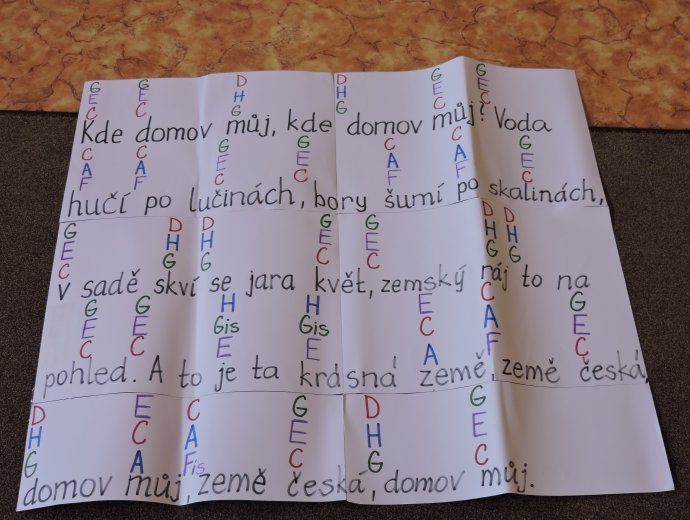 G G D D G G
E E H H E E
C C G G C C
Kde domov můj, kde domov můj? Voda
C C G G C C G
A A E E A A E
F F C C F F C
hučí po lučinách, bory šumí po skalinách,
G D D G G D D
E H H E E H H
C G G C C G G
v sadě skví se jara květ, zemský ráj to na
G G H H E C G
E E Gis Gis C A E
C C E E A F C
pohled. A to je ta krásná země, země česká,
D E C G D G
H C A E H E
G A Fis C G C
domov můj, země česká, domov můj.